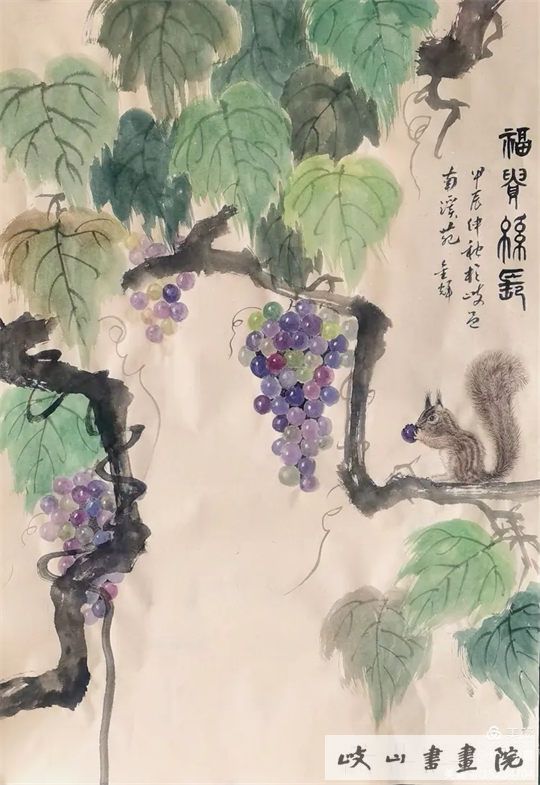 福壽綿長
甲辰仲秋於岐邑
南溪苑 金辉
岐山書畫院